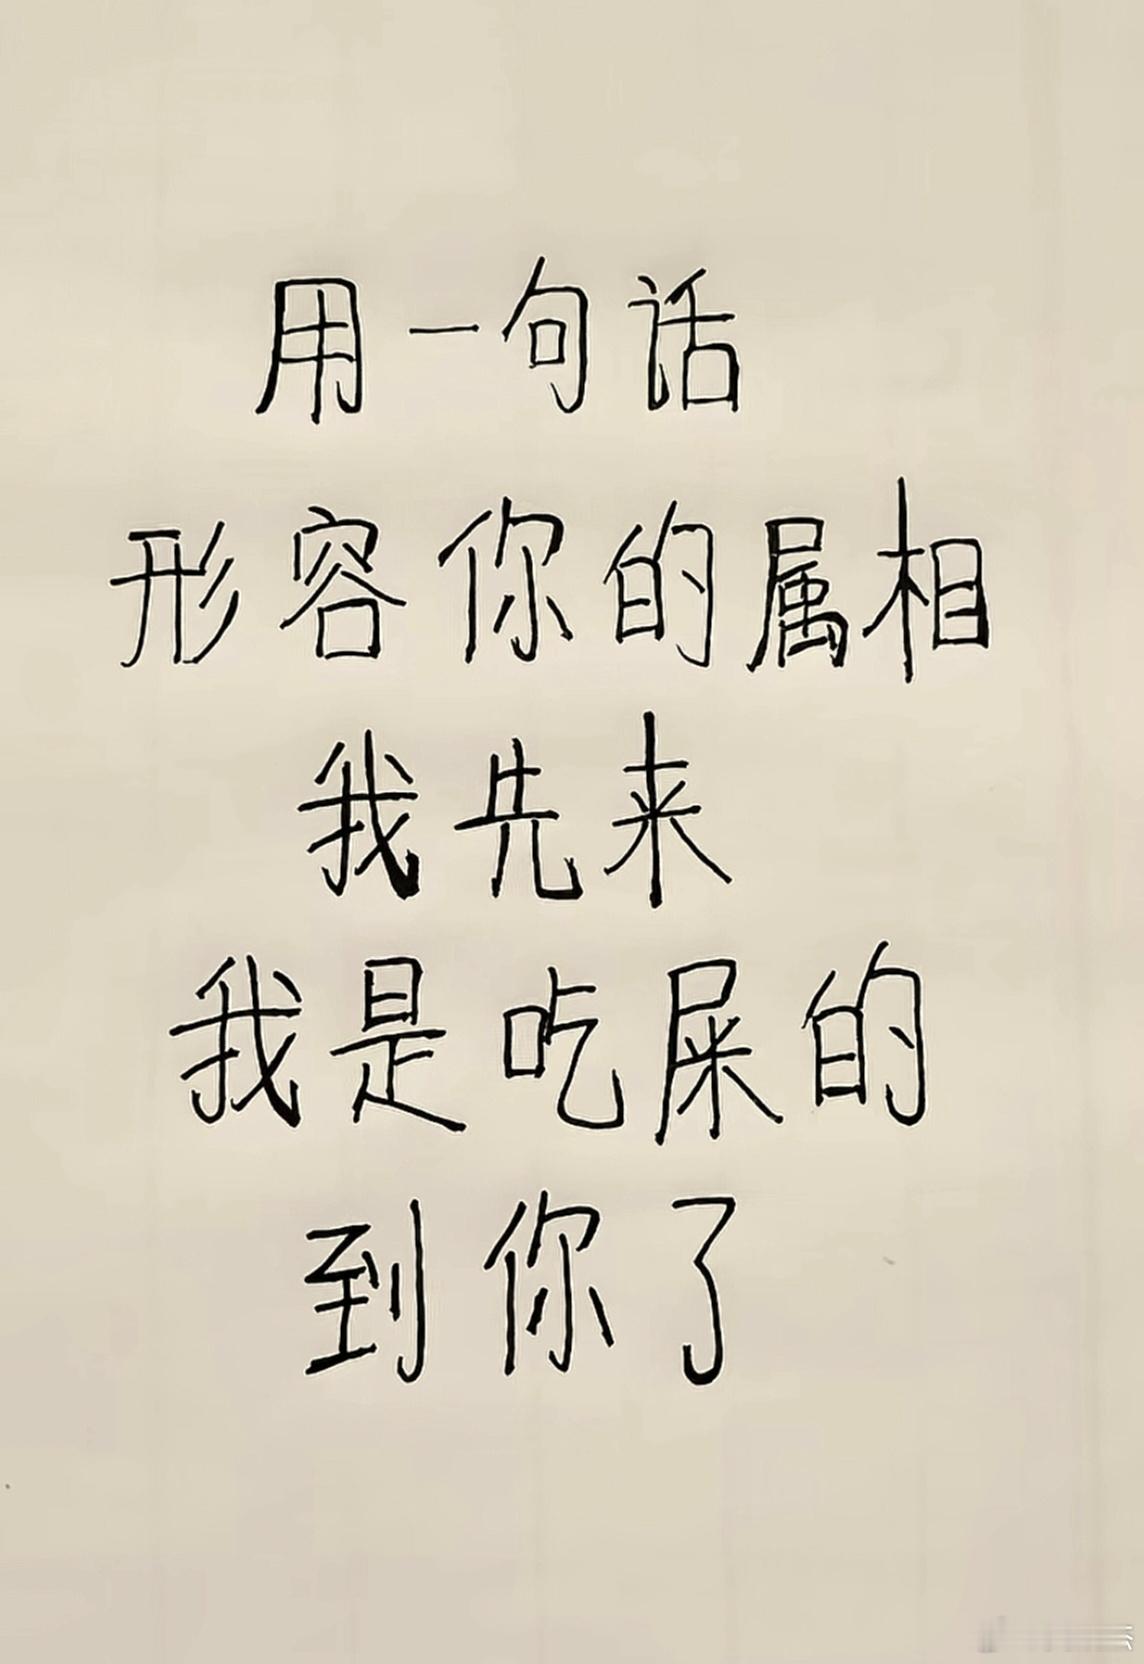 用一句话
形容你的属相
我先来
我是吃屎的
到你了